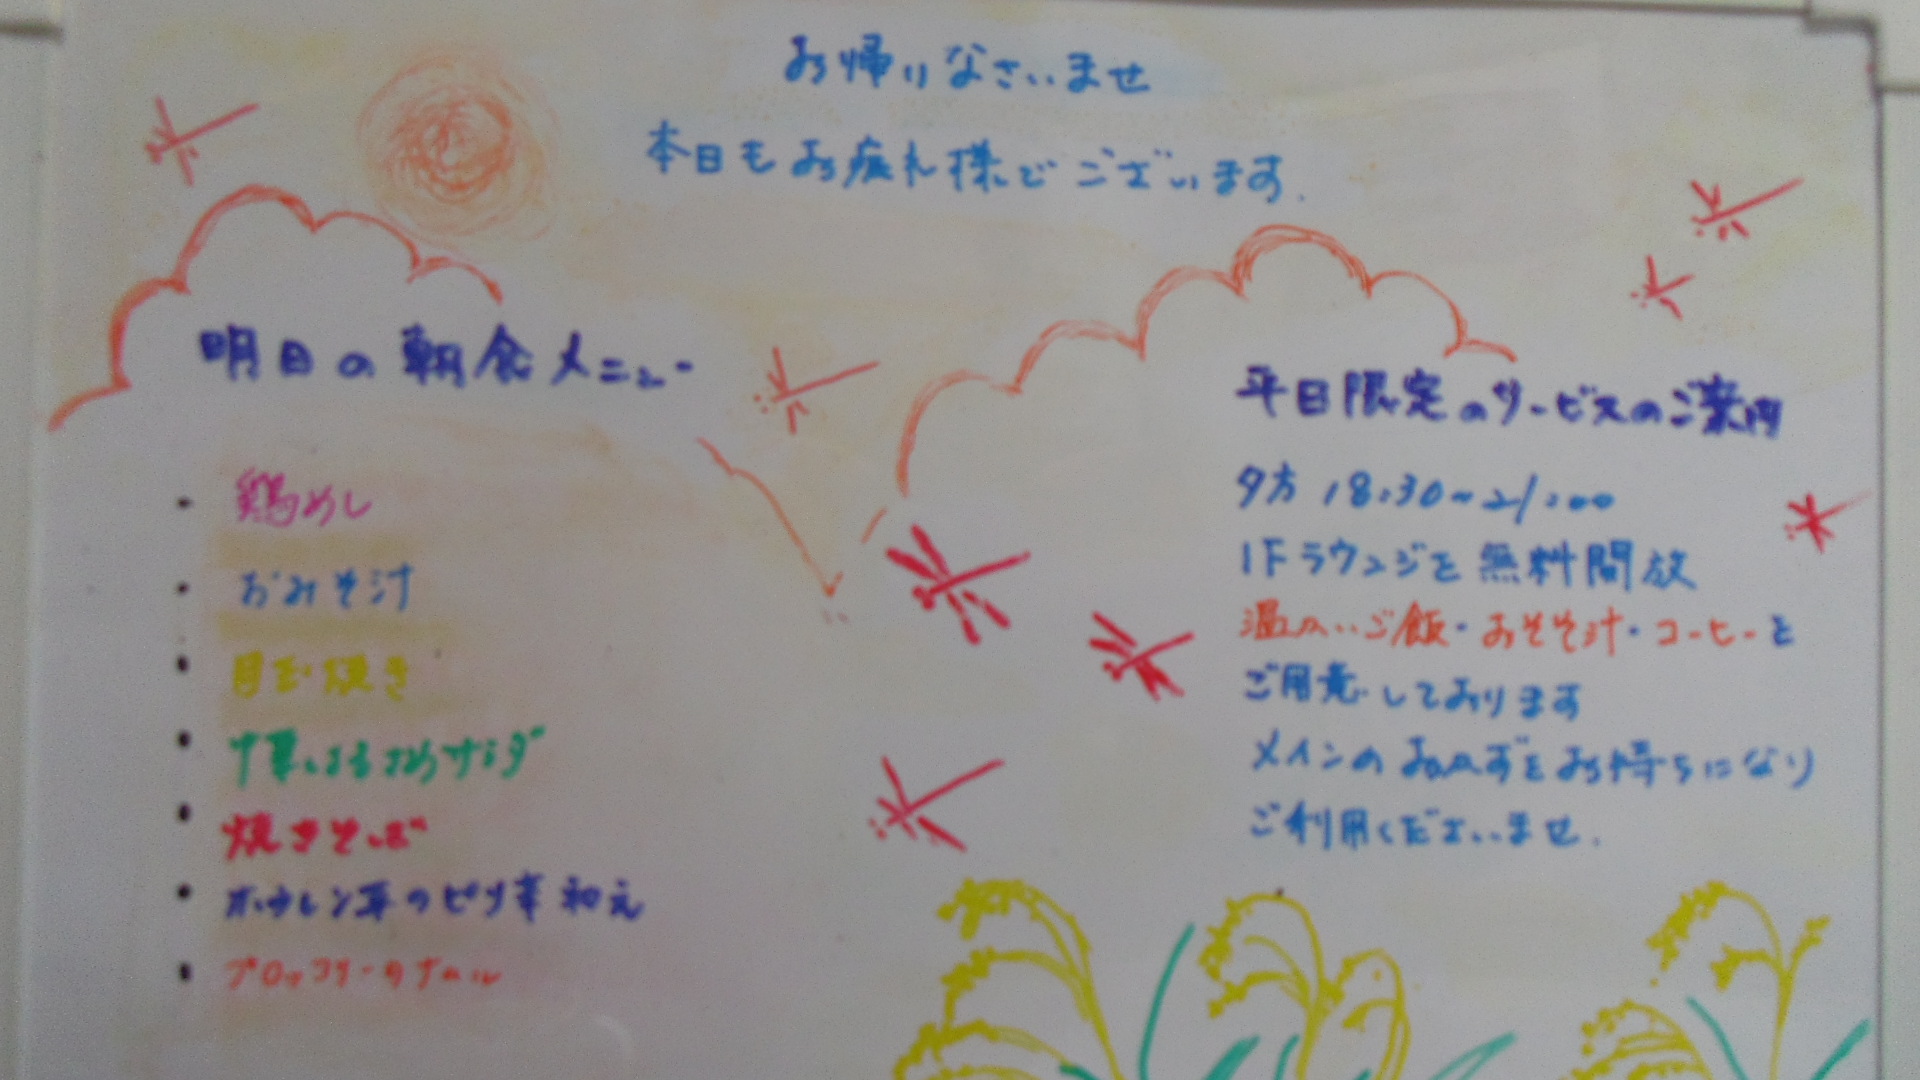 お帰りなさいませ
本日もお疲れ様でございます.
明日の朝食メニュー
・鶏めし
・おみそ汁
・目玉焼き
・中華はるさめサラダ
・焼きそば
・ホウレン草のピリ辛和え
・ブロッコリーのナムル
平日限定のサービスのご案内
夕方 18:30~21:00
1Fラウンジを無料開放
温かいご飯・おみそ汁・コーヒーを
ご用意しております
メインのおかずをお持ちになり
ご利用くださいませ.